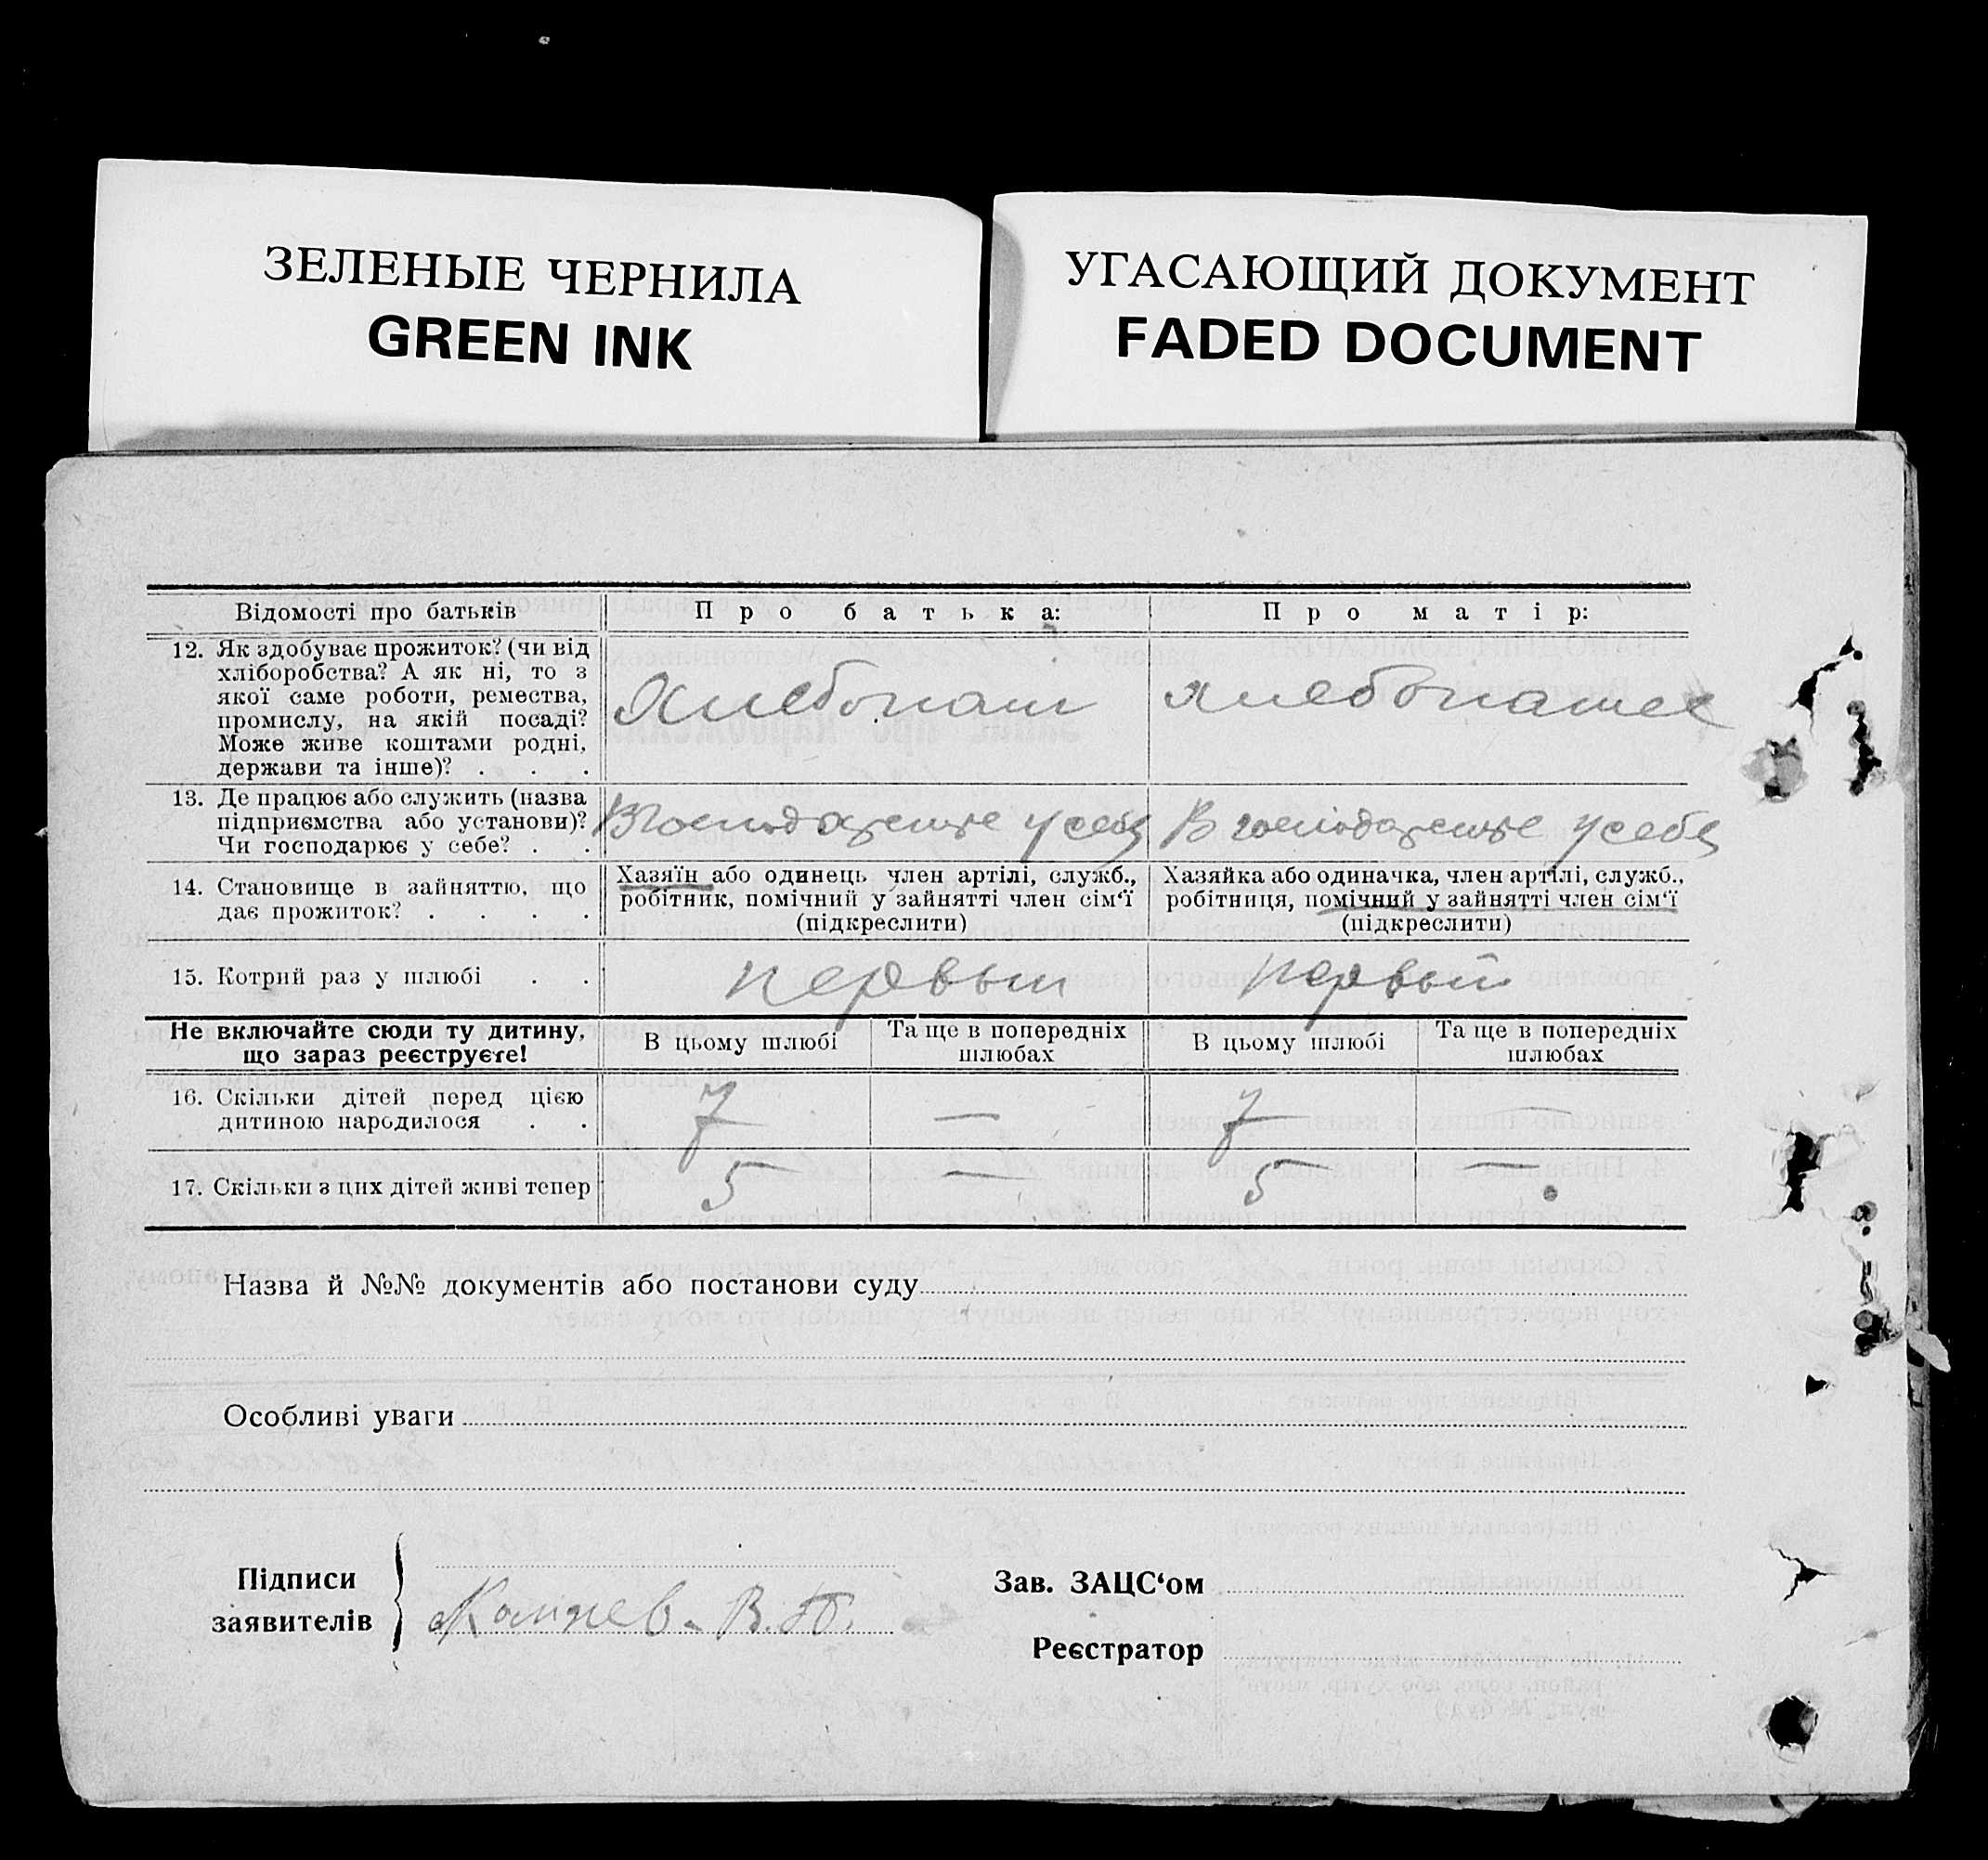 ЗЕЛЕНЫЕ ЧЕРНИЛА
GREEN INK
УГАСАЮЩИЙ ДОКУМЕНТ
FADED DOCUMENT
Відомості про батьків
Про батька:
Про матір:
12. Як здобуває прожиток? (чи від
хліборобства? А як ні, то з
якої саме роботи, ремества,
промислу, на якій посаді?
Може живе коштами родні,
держави та інше)? . . .
Хлебопаш
хлебопашес
13. Де працює або служить (назва
підприємства або установи)?
Чи господарює у себе? . .
В усебя
В усебя
14. Становище в зайняттю, що
дає прожиток? . . . .
Хазяїн або одинець член артілі, служб.,
робітник, помічний у зайнятті член сім‘ї
(підкреслити)
Хазяйка або одиначка, член артілі, служб.,
робітниця, помічний у зайнятті член сім‘ї
(підкреслити)
15. Котрий раз у шлюбі . .
первый
первый
Не включайте сюди ту дитину,
що зараз реєструєте!
В цьому шлюбі
Та ще в попередніх
шлюбах
В цьому шлюбі
Та ще в попередніх
шлюбах
16. Скільки дітей перед цією
дитиною народилося . .
7 — 7 —
17. Скільки з цих дітей живі тепер
5 — 5 —
Назва й №№ документів або постанови суду
Особливі уваги
Підписи
заявителів
В.
Зав. ЗАЦС‘ом
Реєстратор